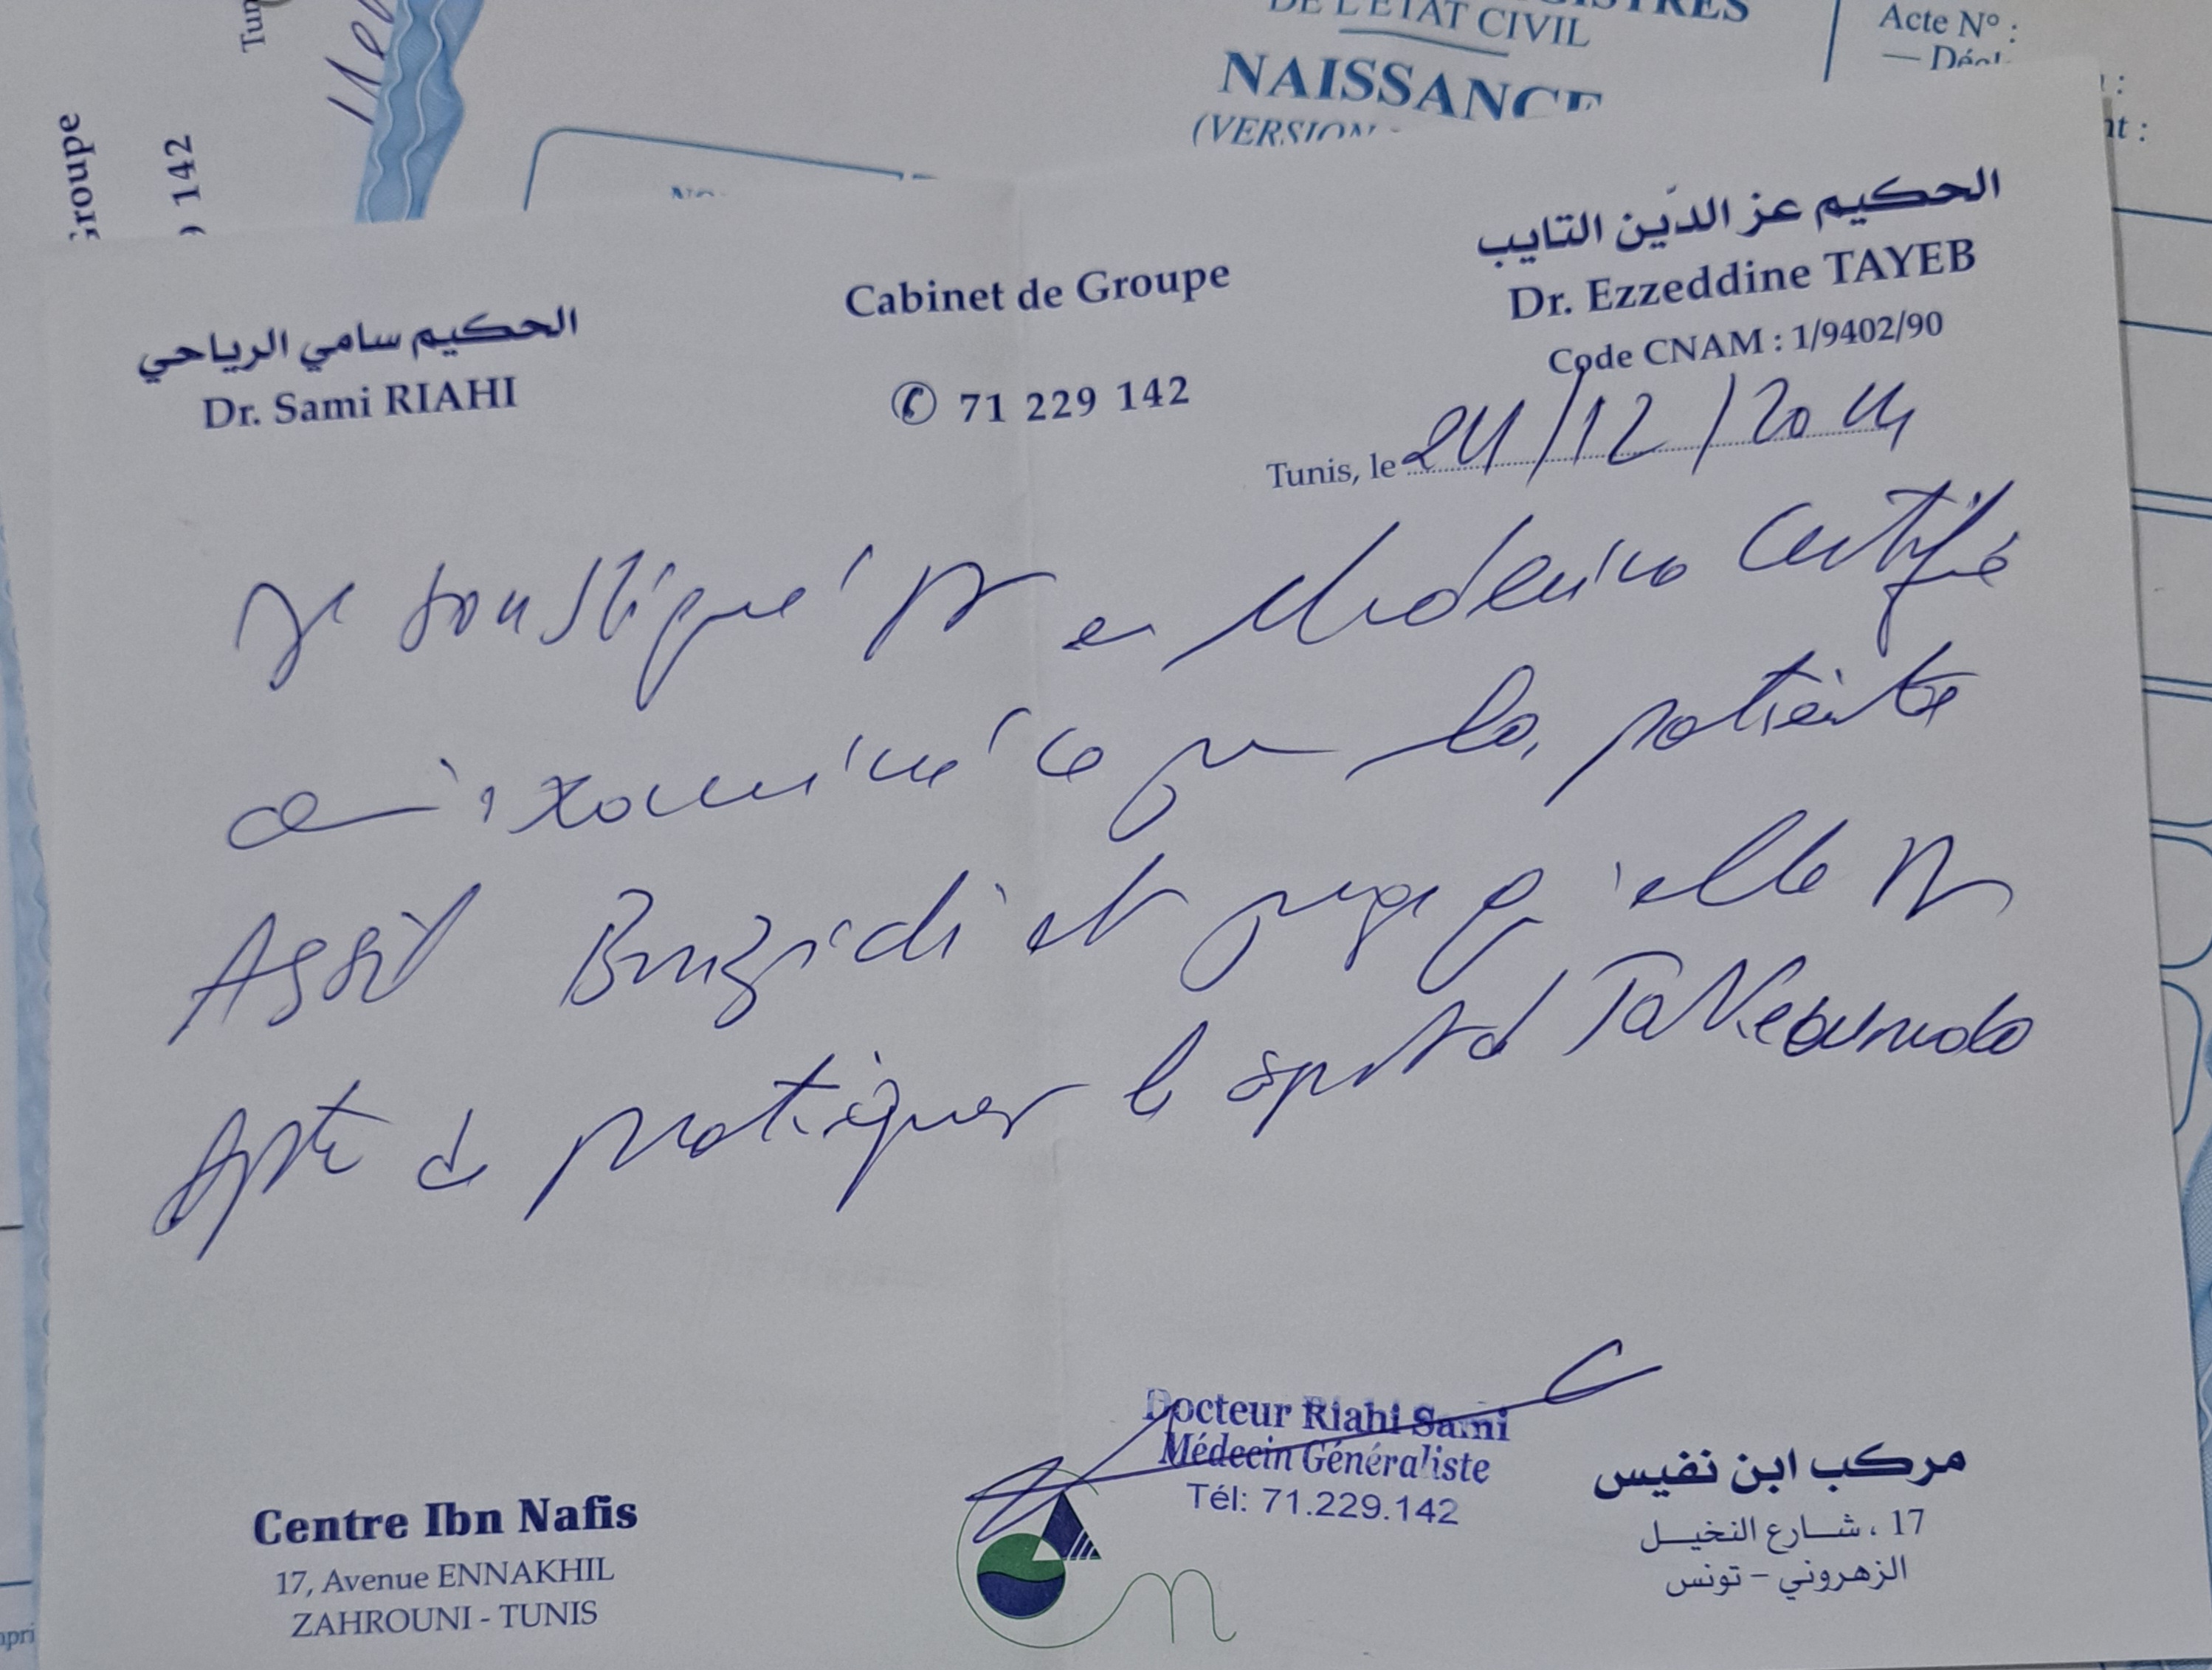 Tun
Groupe
142
DE L'ETAT CIVIL
NAISSANCE
(VERSION
Acte N° :
الحكيم عز الدّين التايب
Dr. Ezzeddine TAYEB
Code CNAM : 1/9402/90
Cabinet de Groupe
✆ 71 229 142
الحكيم سامي الرياحي
Dr. Sami RIAHI
Tunis, le 24/12/2024
Je soussigné Dr en Medecine Certifie
avoir examiné ce jour la patiente
Assil Bouzidi et juge qu'elle est
Apte à pratiquer le sport d Taekwondo
Docteur Riahi Sami
Médecin Généraliste
Tél: 71.229.142
Centre Ibn Nafis
17, Avenue ENNAKHIL
ZAHROUNI - TUNIS
مركب ابن نفيس
17 ، شارع النخيل
الزهروني - تونس